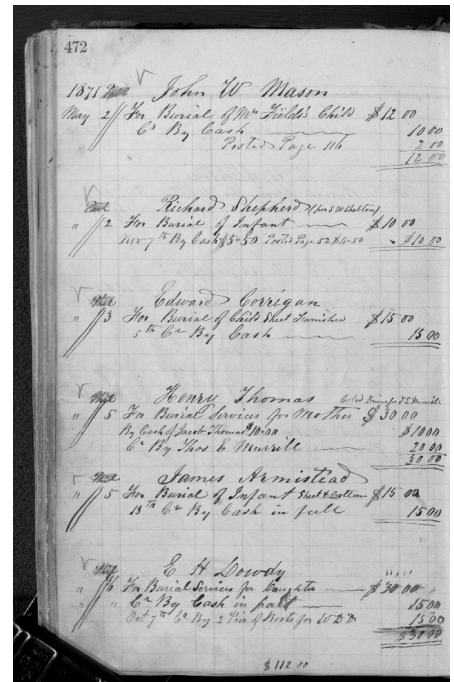 472
1871 Paid John W Mason
May 2 For Burial of Mr Fields's Child $12 00
Cr By Cash 10 00
Posted Page 116 2 00
12 00
Paid Richard Shepherd (per S W Shelton)
" 2 For Burial of Infant $10 00
Nov 7th By Cash $5.50 Posted Page 52 $4.50 $10 00
Paid Edward Corrigan
" 3 For Burial of Child Sheet Furnished $15 00
5th Cr By Cash 15 00
Paid Henry Thomas
" 5 For Burial Services for Mother $30 00
By Cash of Jacob Thomas $10.00 $10 00
Cr By Thos E Murrill 20 00
30 00
Paid James Armistead
" 5 For Burial of Infant Sheet & Cotton $15 00
15th Cr By Cash in full 15 00
Paid E H Dowdy
" 6 For Burial Services for Daughter $30 00
" " Cr By Cash in part 15 00
Oct 7th Cr By 2 Pair of Boots for W D D 15 00
$30 00
$112 00